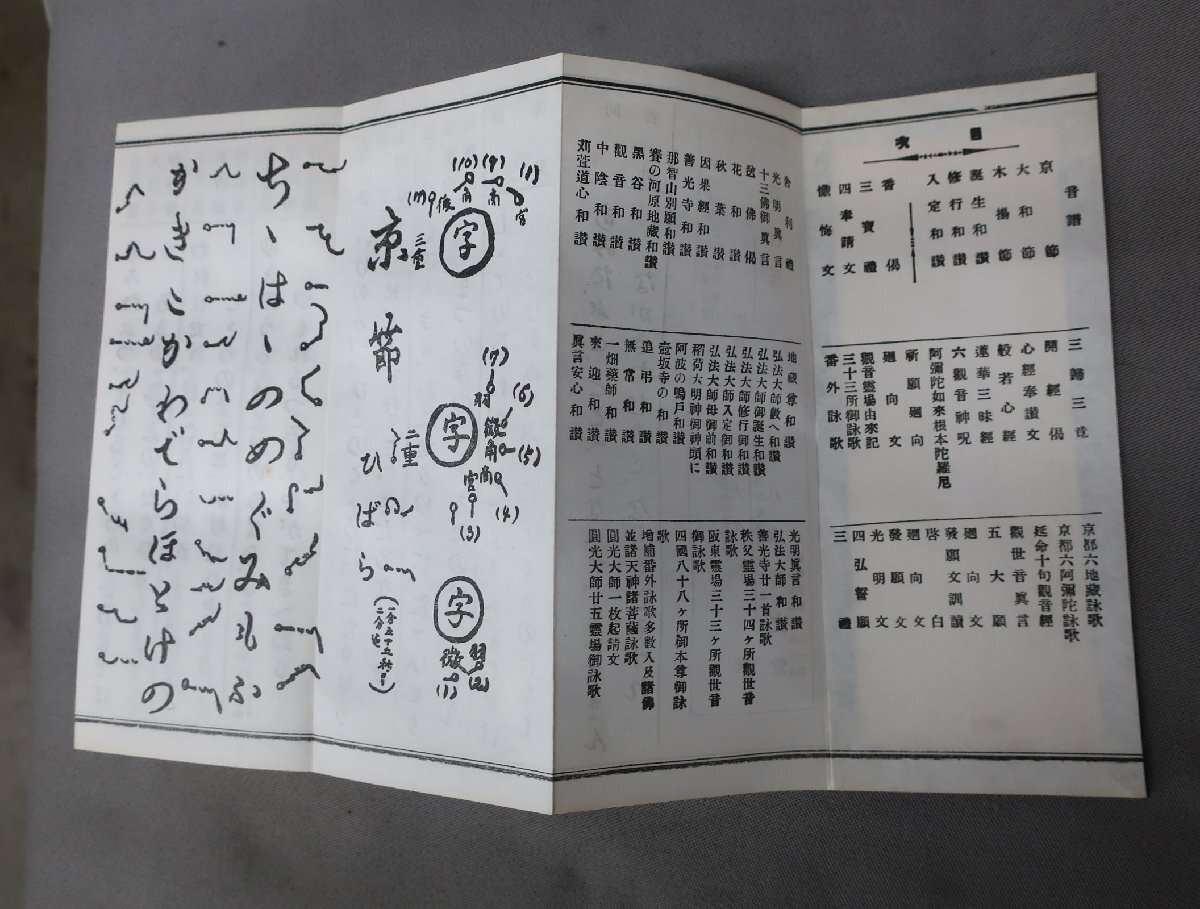 目次
音譜
京節
大和節
木揚節
誕生和讃
修行和讃
入定和讃
香偈
三寶禮
四奉請文
懺悔文
三歸三竟
開經偈
心經奉讃文
般若心經
蓮華三昧經
六觀音神呪
阿彌陀如來根本陀羅尼
祈願廻向
廻向文
觀音靈場由來記
三十三所御詠歌
番外詠歌
京都六地藏詠歌
京都六阿彌陀詠歌
延命十句觀音經
觀世音眞言
五大願
廻向文
發願文訓讀
啓白
廻向文
發願文
光明文
四弘誓願
三禮
舍利禮
光明眞言
十三佛御眞言
送佛偈
花和讃
秋葉讃
因果經和讃
善光寺和讃
那智山別願和讃
賽の河原地藏和讃
黑谷和讃
觀音和讃
中陰和讃
苅萱道心和讃
地藏尊和讃
弘法大師敎へ和讃
弘法大師御誕生和讃
弘法大師修行御和讃
弘法大師入定御和讃
弘法大師母御前和讃
稻荷大明神御神頌に
阿波の鳴戸和讃
壺坂寺の和讃
追弔和讃
無常和讃
一畑藥師和讃
來迎和讃
眞言安心和讃
光明眞言和讃
弘法大師和讃
善光寺廿一首詠歌
秩父靈場三十四ヶ所觀世音
詠歌
阪東靈場三十三ヶ所觀世音
御詠歌
四國八十八ヶ所御本尊御詠
歌
增補番外詠歌多數入及諸佛
並諸天神諸菩薩詠歌
圓光大師一枚起請文
圓光大師廿五靈場御詠歌
(1)宮
(9)商
(10)角
(11)
字
三重
京節
(7)羽
(6)徵
(5)角
(4)商
(3)宮
字
二重
字
(2)羽
(1)徵
ひばら
ちゝはゝのめぐみもふ
かきこかわでらほとけの